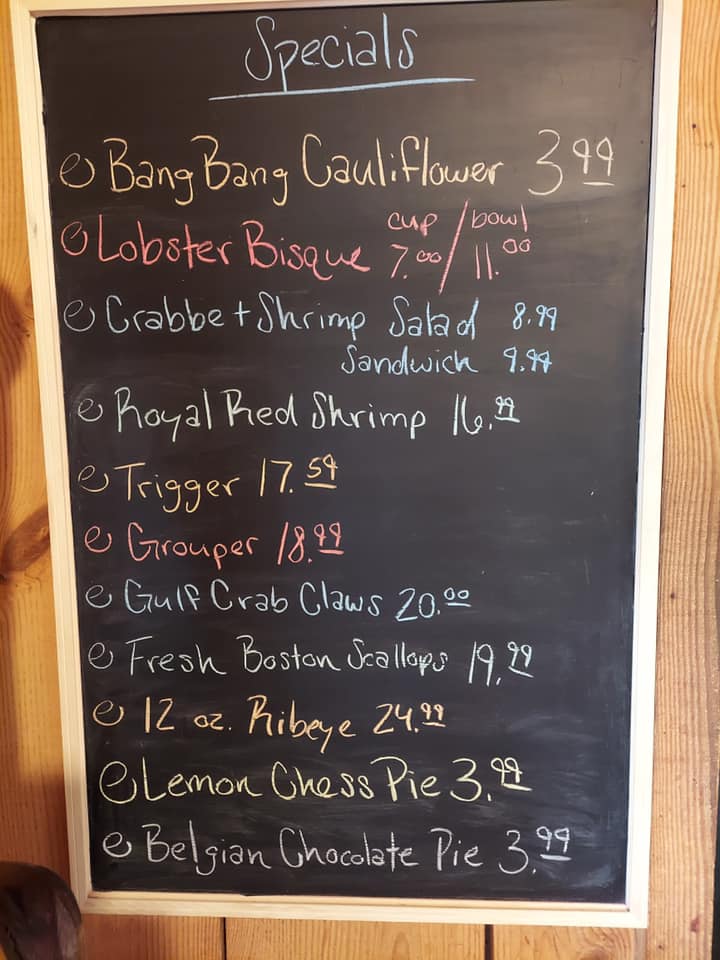 Specials
Bang Bang Cauliflower 3.99
cup / bowl
Lobster Bisque 7.00 / 11.00
Crabbe + Shrimp Salad 8.99
Sandwich 9.99
Royal Red Shrimp 16.99
Trigger 17.59
Grouper 18.99
Gulf Crab Claws 20.00
Fresh Boston Scallops 19.99
12 oz. Ribeye 24.99
Lemon Chess Pie 3.99
Belgian Chocolate Pie 3.99